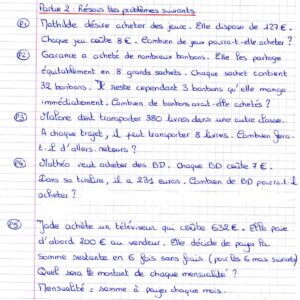 Partie 2 : Résous les problèmes suivants
P1 Mathilde désire acheter des jeux. Elle dispose de 127 €.
Chaque jeu coûte 8 €. Combien de jeux pourra-t-elle acheter ?
P2 Garance a acheté de nombreux bonbons. Elle les partage
équitablement en 8 grands sachets. Chaque sachet contient
32 bonbons. Il reste cependant 3 bonbons qu'elle mange
immédiatement. Combien de bonbons avait-elle achetés ?
P3 doit transporter 380 livres dans une autre classe.
A chaque trajet, il peut transporter 8 livres. Combien fera-
t-il d'allers-retours ?
P4 Mathéo veut acheter des BD. Chaque BD coûte 7 €.
Dans sa tirelire, il a 231 euros. Combien de BD pourra-t-il
acheter ?
P5 Jade achète un téléviseur qui coûte 632 €. Elle paie
d'abord 200 € au vendeur. Elle décide de payer la
somme restante en 6 fois sans frais (pour les 6 mois suivants)
Quel sera le montant de chaque mensualité ?
Mensualité = somme à payer chaque mois.